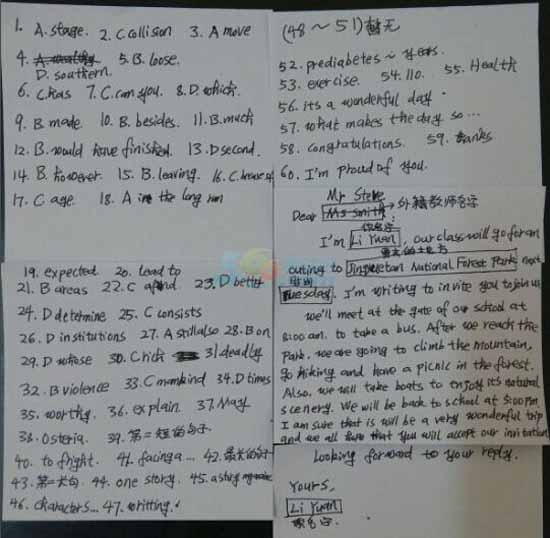 1. A. stage. 2. C collison 3. A move
4. A. wealthy 5. B. loose.
D. southern.
6. C has 7. C. can you. 8. D. which.
9. B. made. 10. B. besides. 11. B. much
12. B. would have finished. 13. D second.
14. B. however. 15. B. leaving. 16. C.
17. C age. 18. A in the long run
19. expected 20. lead to
21. B areas 22. C and. 23. D better
24. D determine 25. C consists
26. D institutions 27. A still also 28. B on
29. D whose 30. C rich 31. deadly
32. B violence 33. C mankind 34. D times
35. worthy. 36. explain. 37. May
38. Osteria. 39. 第二短的句子
40. to fright. 41. facing a ... 42. 最大的
43. 第一大句. 44. one story. 45. a story
46. characters... 47. writting.
(48～51)暂无
52. prediabetes ~ years.
53. exercise. 54. 110. 55. Health
56. its a wonderful day.
57. what makes the day so ...
58. congratulations. 59. thanks
60. I'm proud of you.
Mr Steve
Dear Ms smith → 外籍教师名字
:
你名字
I'm Li Yuan, our class will go for an
outing to Jinyuetan National Forest Park next
时间
Tuesday. I'm writing to invite you to join us
we'll meet at the gate of our school at
8:00 am. to take a bus. After we reach the
park. we are going to climb the mountain,
go hiking and have a picnic in the forest.
Also, we will take boats to enjoy its natural
scenery. We will be back to school at 5:00 pm
I am sure that is will be a very wonderful trip
and we all that you will accept our invitation
Looking forward to your reply.
Yours,
Li Yuan
名字.